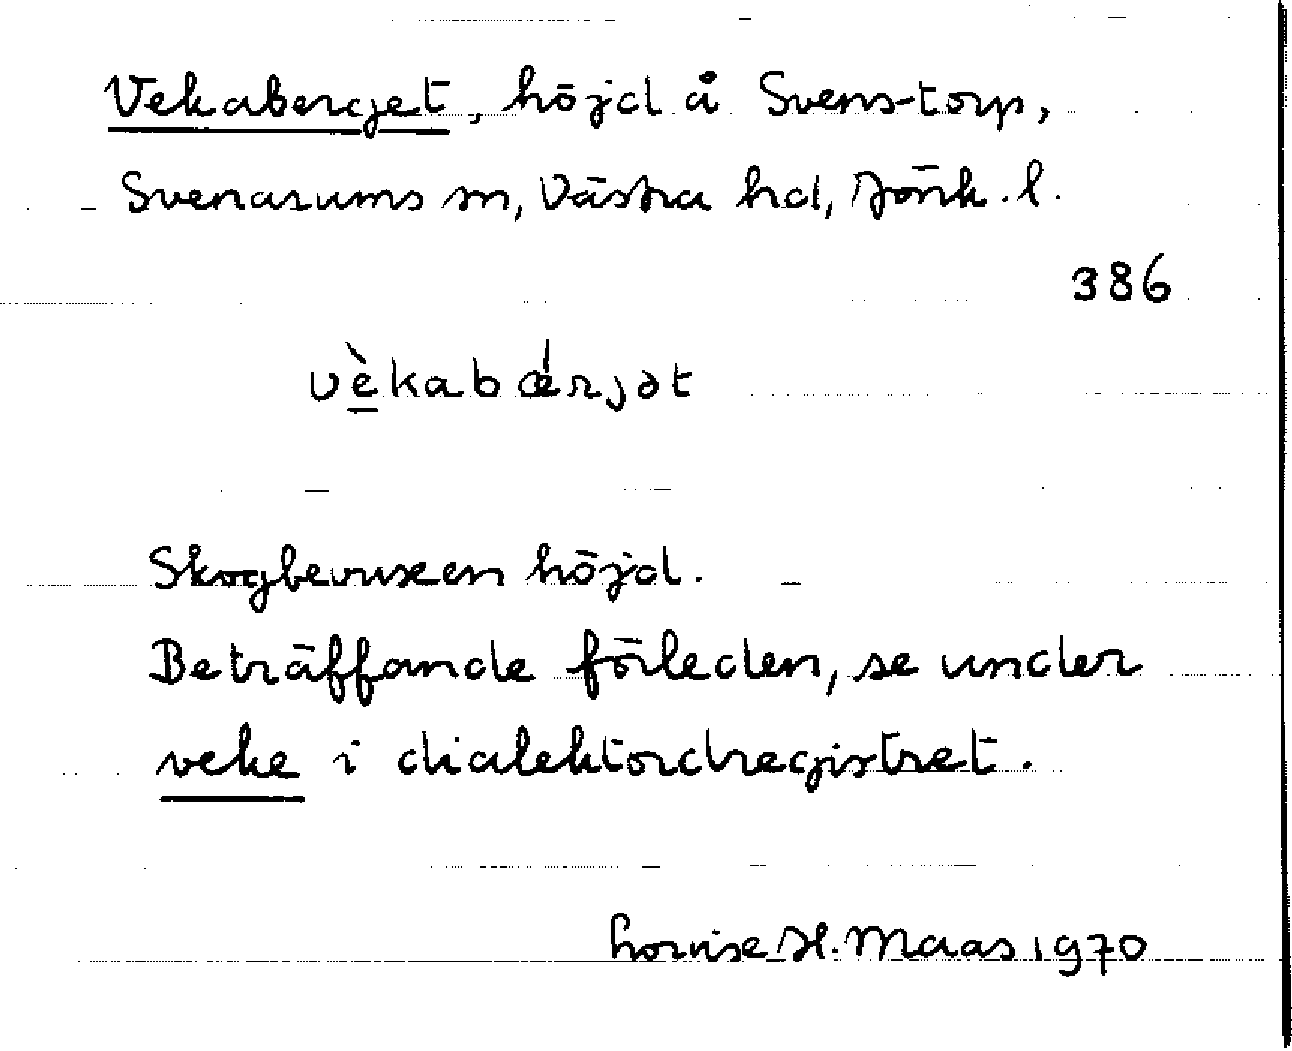 Vekaberget, höjd å Svens-torp,
Svenarums sn, Västra hd, Jönk. l.
386
vè̱kabǽrjət
Skogbevuxen höjd.
Beträffande förleden, se under
veke i dialektordregistret.
Lovise H. Maas 1970